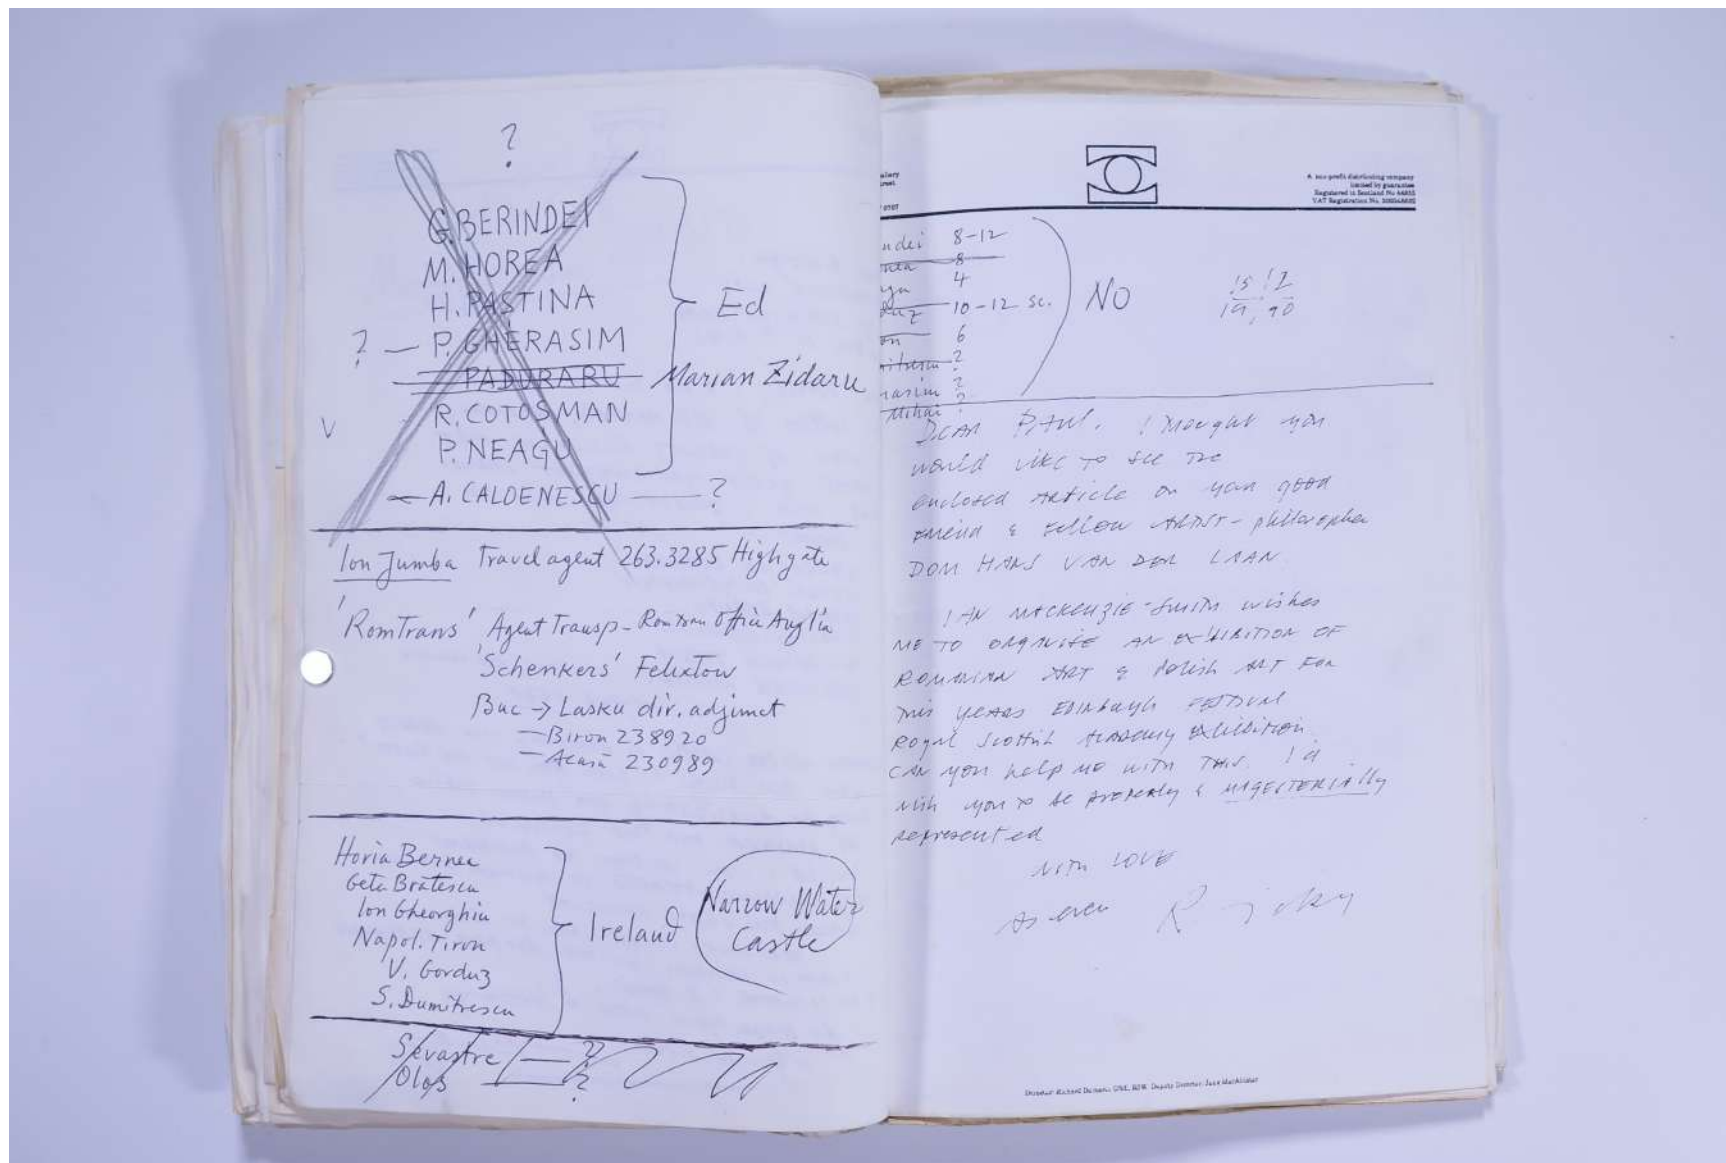 ?
G. BERINDEI
M. HOREA
H. PASTINA
? — P. GHERASIM
PADURARU
R. COTOSMAN
V
P. NEAGU
A. CALDENESCU — ?
Ed
Marian Zidaru
Ion Jumba Travel agent 263.3285 Highgate
'RomTrans' Agent Transp - Romtran Anglia
'Schenkers' Felixtow
Buc → Lasku dir. adjunct
— Birou 238920
— Acasă 230989
Horia Bernea
Geta Brătescu
Ion Gheorghiu
Napol. Tiron
V. Gorduz
S. Dumitrescu
Ireland
Narrow Water
Castle
Sevastre — ?
Olos — ?
A non-profit distributing company
limited by guarantee
Registered in Scotland No
VAT Registration No.
ndei 8-12
nea 8
4
duz 10-12 sc.
on 6
?
rasim ?
Mihai ?
NO
15 12
19, 90
DEAR PAUL. I thought you
would like to see the
enclosed article on your good
friend & fellow artist - philosopher
DOM HANS VAN DER LAAN.
IAN MACKENZIE-Smith wishes
me to organise an exhibition of
Roumanian art & Polish art for
this years Edinburgh Festival
Royal Scottish Academy exhibition.
Can you help me with this. I'd
wish you to be properly & magesterially
represented
with love
as ever Ricky
Director: Richard Demarco, OBE, RSW Deputy Director: Jane MacAllister